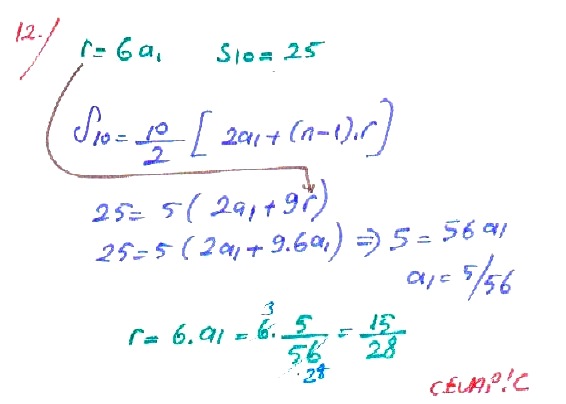 12./ r = 6a₁ S₁₀ = 25
S₁₀ = 10/2 [2a₁ + (n-1).r]
25 = 5(2a₁ + 9r)
25 = 5(2a₁ + 9.6a₁) ⇒ 5 = 56a₁
a₁ = 5/56
r = 6.a₁ = 6³. 5/56₂₈ = 15/28
CEVAP: C